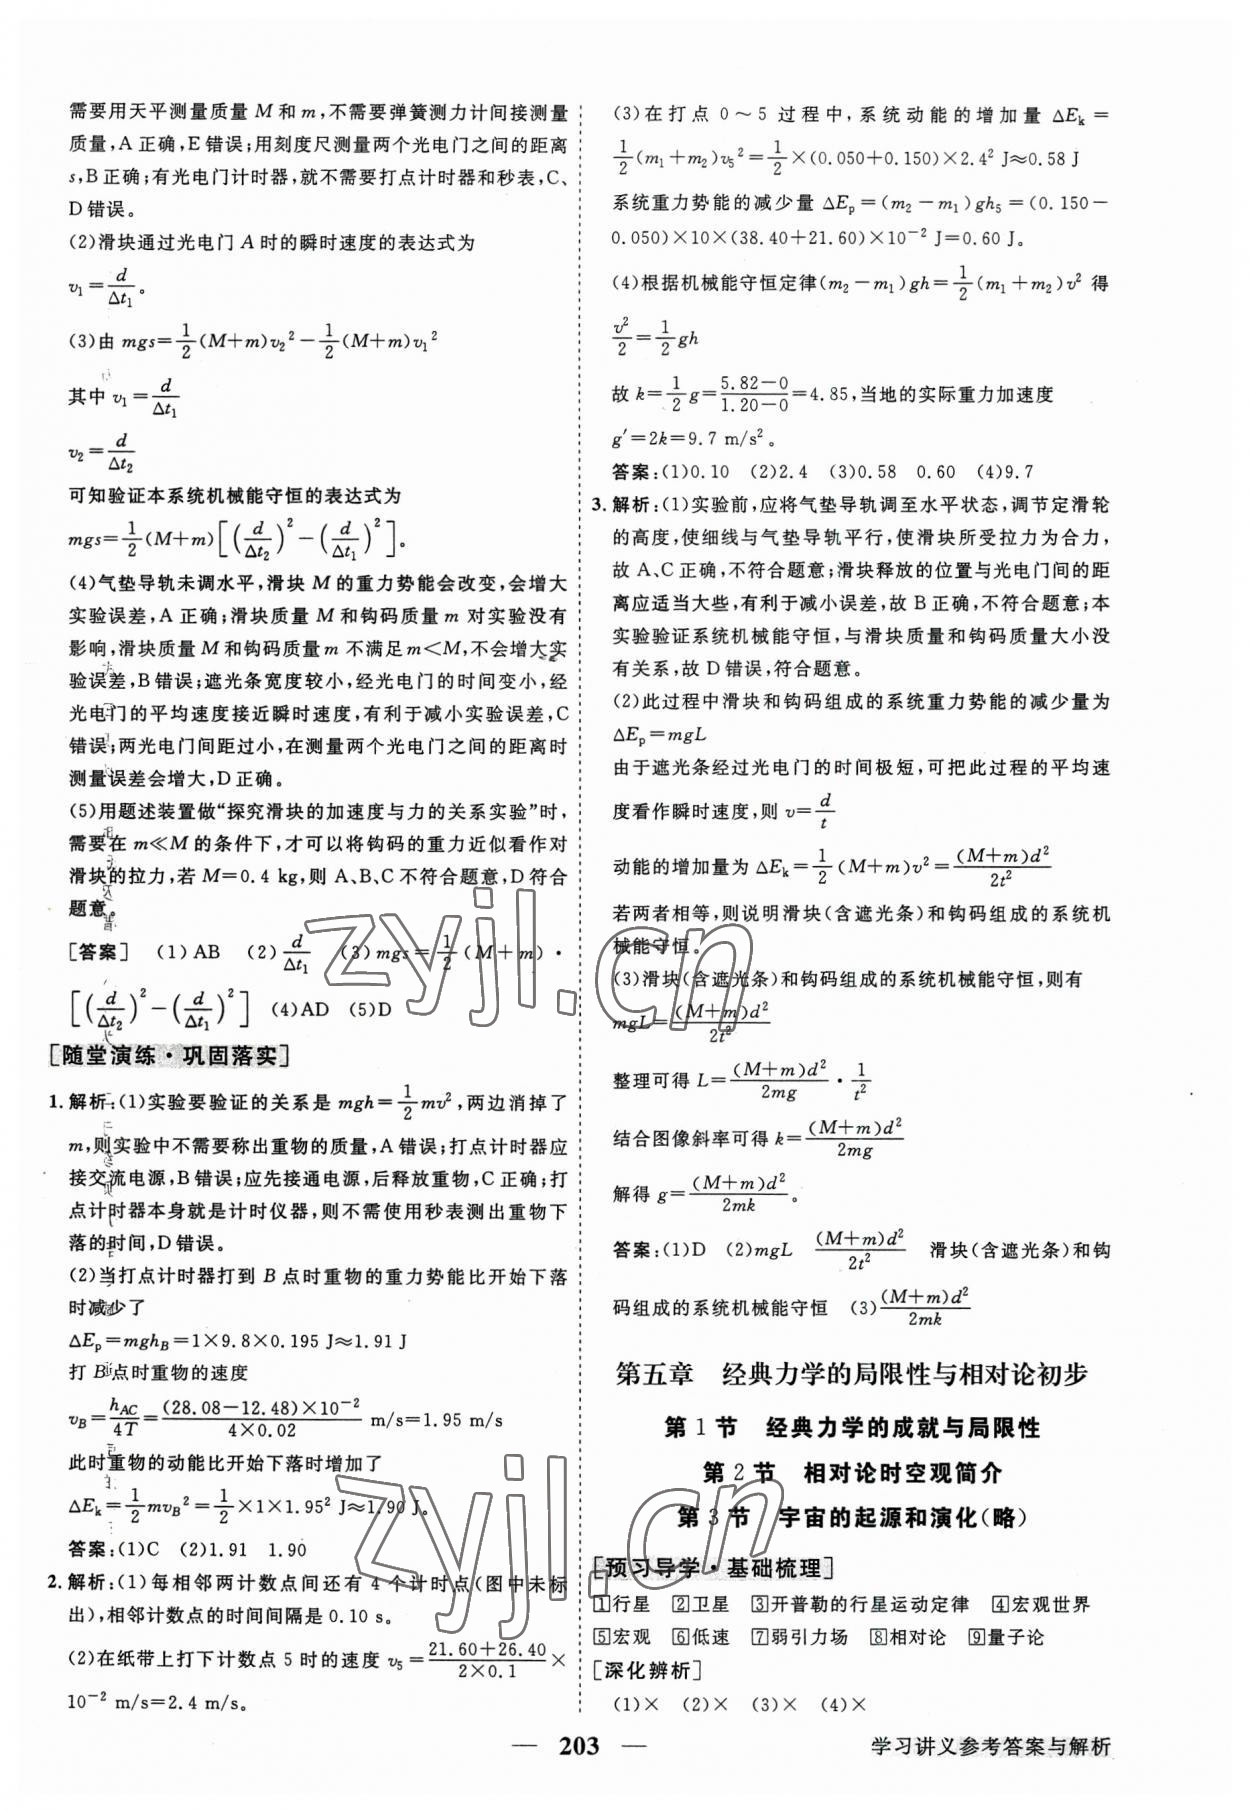 需要用天平测量质量 M 和 m,不需要弹簧测力计间接测量
质量,A 正确,E 错误;用刻度尺测量两个光电门之间的距离
s,B 正确;有光电门计时器,就不需要打点计时器和秒表,C、
D 错误。
(2)滑块通过光电门 A 时的瞬时速度的表达式为
v₁=d/Δt₁。
(3)由 mgs=1/2(M+m)v₂²-1/2(M+m)v₁²
其中 v₁=d/Δt₁
v₂=d/Δt₂
可知验证本系统机械能守恒的表达式为
mgs=1/2(M+m)[(d/Δt₂)²-(d/Δt₁)²]。
(4)气垫导轨未调水平,滑块 M 的重力势能会改变,会增大
实验误差,A 正确;滑块质量 M 和钩码质量 m 对实验没有
影响,滑块质量 M 和钩码质量 m 不满足 m<M,不会增大实
验误差,B 错误;遮光条宽度较小,经光电门的时间变小,经
光电门的平均速度接近瞬时速度,有利于减小实验误差,C
错误;两光电门间距过小,在测量两个光电门之间的距离时
测量误差会增大,D 正确。
(5)用题述装置做“探究滑块的加速度与力的关系实验”时,
需要在 m≪M 的条件下,才可以将钩码的重力近似看作对
滑块的拉力,若 M=0.4 kg,则 A、B、C 不符合题意,D 符合
题意。
[答案] (1)AB (2)d/Δt₁ (3)mgs=1/2(M+m)·
[(d/Δt₂)²-(d/Δt₁)²] (4)AD (5)D
[随堂演练·巩固落实]
1.解析:(1)实验要验证的关系是 mgh=1/2mv²,两边消掉了
m,则实验中不需要称出重物的质量,A 错误;打点计时器应
接交流电源,B 错误;应先接通电源,后释放重物,C 正确;打
点计时器本身就是计时仪器,则不需使用秒表测出重物下
落的时间,D 错误。
(2)当打点计时器打到 B 点时重物的重力势能比开始下落
时减少了
ΔEₚ=mgh_B=1×9.8×0.195 J≈1.91 J
打 B 点时重物的速度
v_B=h_AC/4T=(28.08-12.48)×10⁻²/4×0.02 m/s=1.95 m/s
此时重物的动能比开始下落时增加了
ΔEₖ=1/2mv_B²=1/2×1×1.95² J≈1.90 J。
答案:(1)C (2)1.91 1.90
2.解析:(1)每相邻两计数点间还有 4 个计时点(图中未标
出),相邻计数点的时间间隔是 0.10 s。
(2)在纸带上打下计数点 5 时的速度 v₅=21.60+26.40/2×0.1×
10⁻² m/s=2.4 m/s。
(3)在打点 0～5 过程中,系统动能的增加量 ΔEₖ=
1/2(m₁+m₂)v₅²=1/2×(0.050+0.150)×2.4² J≈0.58 J
系统重力势能的减少量 ΔEₚ=(m₂-m₁)gh₅=(0.150-
0.050)×10×(38.40+21.60)×10⁻² J=0.60 J。
(4)根据机械能守恒定律(m₂-m₁)gh=1/2(m₁+m₂)v² 得
v²/2=1/2gh
故 k=1/2g=5.82-0/1.20-0=4.85,当地的实际重力加速度
g′=2k=9.7 m/s²。
答案:(1)0.10 (2)2.4 (3)0.58 0.60 (4)9.7
3.解析:(1)实验前,应将气垫导轨调至水平状态,调节定滑轮
的高度,使细线与气垫导轨平行,使滑块所受拉力为合力,
故 A、C 正确,不符合题意;滑块释放的位置与光电门间的距
离应适当大些,有利于减小误差,故 B 正确,不符合题意;本
实验验证系统机械能守恒,与滑块质量和钩码质量大小没
有关系,故 D 错误,符合题意。
(2)此过程中滑块和钩码组成的系统重力势能的减少量为
ΔEₚ=mgL
由于遮光条经过光电门的时间极短,可把此过程的平均速
度看作瞬时速度,则 v=d/t
动能的增加量为 ΔEₖ=1/2(M+m)v²=(M+m)d²/2t²
若两者相等,则说明滑块(含遮光条)和钩码组成的系统机
械能守恒。
(3)滑块(含遮光条)和钩码组成的系统机械能守恒,则有
mgL=(M+m)d²/2t²
整理可得 L=(M+m)d²/2mg·1/t²
结合图像斜率可得 k=(M+m)d²/2mg
解得 g=(M+m)d²/2mk。
答案:(1)D (2)mgL (M+m)d²/2t² 滑块(含遮光条)和钩
码组成的系统机械能守恒 (3)(M+m)d²/2mk
第五章 经典力学的局限性与相对论初步
第 1 节 经典力学的成就与局限性
第 2 节 相对论时空观简介
第 3 节 宇宙的起源和演化(略)
[预习导学·基础梳理]
1行星 2卫星 3开普勒的行星运动定律 4宏观世界
5宏观 6低速 7弱引力场 8相对论 9量子论
[深化辨析]
(1)× (2)× (3)× (4)×
— 203 —
学习讲义参考答案与解析
zyjl.cn
zyjl.cn